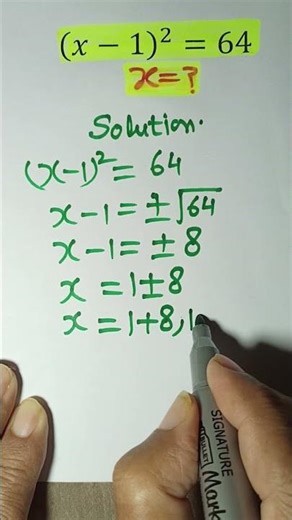 (x − 1)² = 64
x = ?
Solution.
(x−1)² = 64
x−1 = ±√64
x−1 = ± 8
x = 1±8
x = 1+8, 1
SIGNATURE
BULLET
Mark